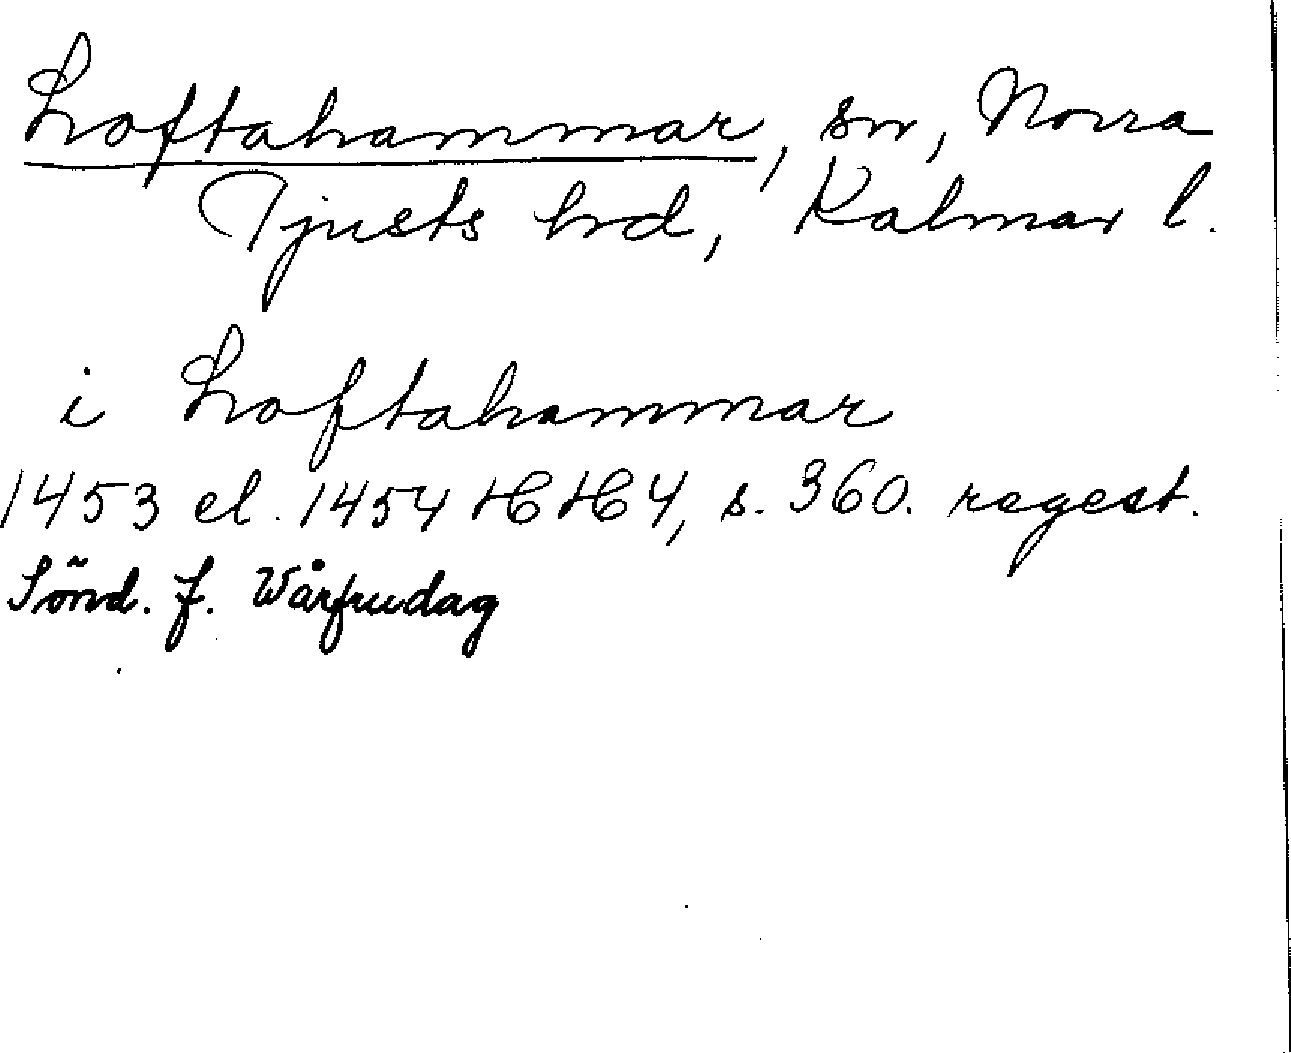 Loftahammar, sn, Norra
Tjusts hd, Kalmar l.
i Loftahammar
1453 el. 1454 HH 4, s. 360. regest.
Sönd. f. Wårfrudag